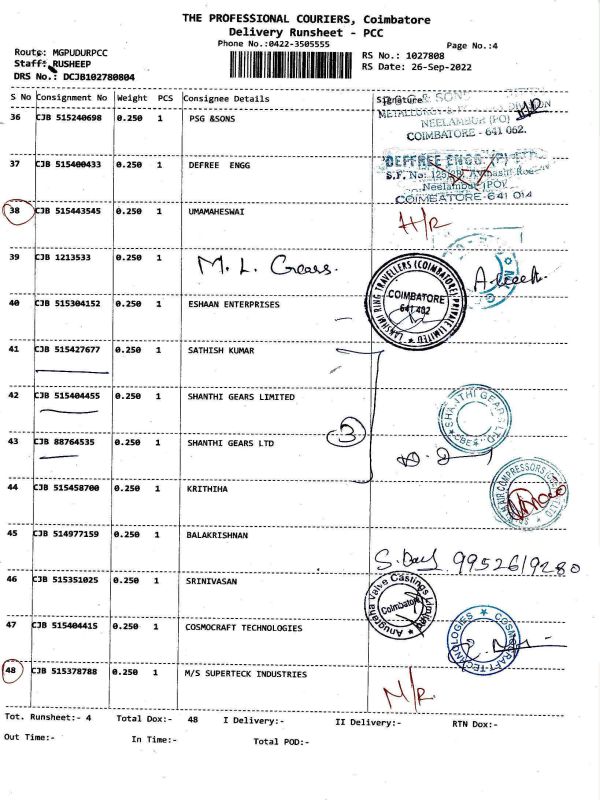 THE PROFESSIONAL COURIERS, Coimbatore
Delivery Runsheet - PCC
Phone No.:0422-3505555
Page No.:4
Route: MGPUDURPCC
RS No.: 1027808
Staff: RUSHEEP
RS Date: 26-Sep-2022
DRS No.: DCJB102780804
S No Consignment No Weight PCS Consignee Details Signature
& SONS
NEELAMBUR (PO)
COIMBATORE - 641 062.
36 CJB 515240698 0.250 1 PSG &SONS
37 CJB 515400433 0.250 1 DEFREE ENGG
DEFFREE ENGG (P) LTD
S.F. No: 125/2B, Avinashi Road
Neelambur (PO)
COIMBATORE - 641 014
38 CJB 515443545 0.250 1 UMAMAHESWAI H/R
39 CJB 1213533 0.250 1 M. L. Gears.
40 CJB 515304152 0.250 1 ESHAAN ENTERPRISES
LAKSHMI RING TRAVELLERS (COIMBATORE) PRIVATE LIMITED
COIMBATORE
641 402
41 CJB 515427677 0.250 1 SATHISH KUMAR
42 CJB 515404455 0.250 1 SHANTHI GEARS LIMITED
SHANTHI GEARS LTD
CBE
43 CJB 88764535 0.250 1 SHANTHI GEARS LTD 3
44 CJB 515458700 0.250 1 KRITHIHA
AIR COMPRESSORS
45 CJB 514977159 0.250 1 BALAKRISHNAN
9952619280
46 CJB 515351025 0.250 1 SRINIVASAN
Anugraha Valve Castings Limited
Coimbatore
47 CJB 515404415 0.250 1 COSMOCRAFT TECHNOLOGIES
COSMOCRAFT-TECHNOLOGIES
48 CJB 515378788 0.250 1 M/S SUPERTECK INDUSTRIES N/R
Tot. Runsheet:- 4 Total Dox:- 48 I Delivery:- II Delivery:- RTN Dox:-
Out Time:- In Time:- Total POD:-